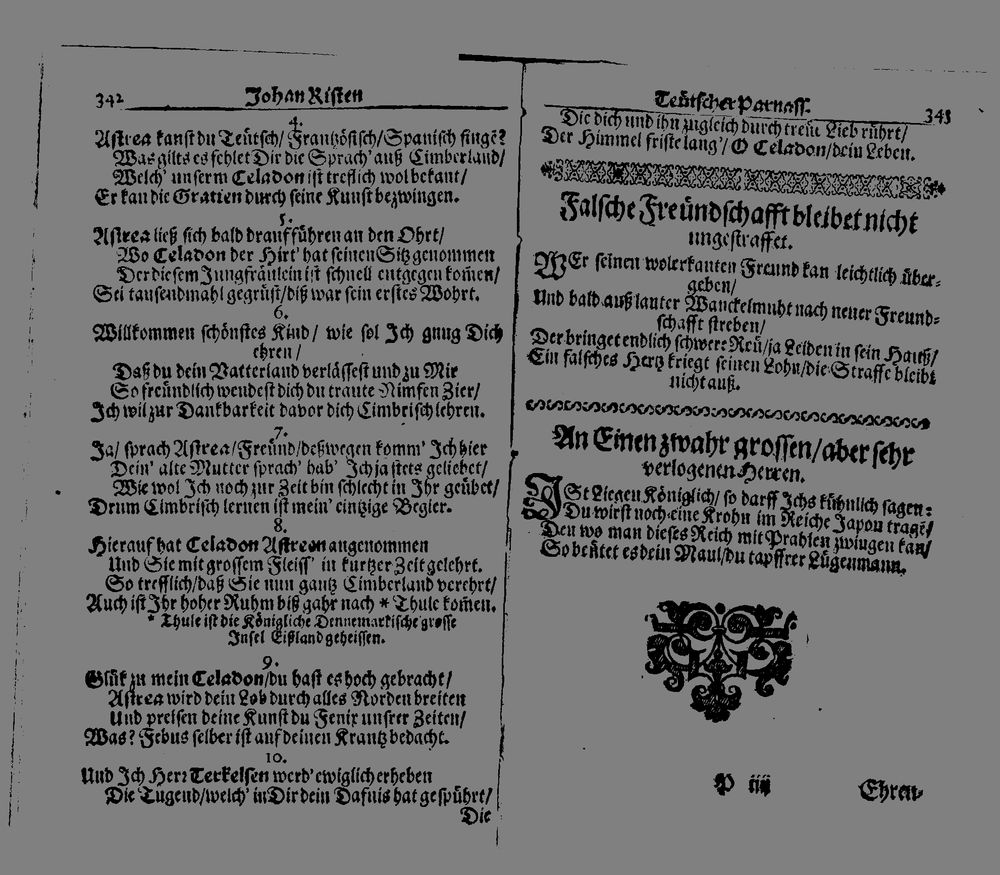 342
Johan Risten
4.
Astrea kanst du Teütsch/ Frantzösisch/ Spanisch singē?
Was gilts es fehlet Dir die Sprach' auß Cimberland/
Welch' unserm Celadon ist treflich wol bekant/
Er kan die Gratien durch seine Kunst bezwingen.
5.
Astrea ließ sich bald drauf führen an den Ohrt/
Wo Celadon der Hirt' hat seinen Sitz genommen
Der diesem Jungfräulein ist schnell entgegen kom̄en/
Sei tausendmahl gegrüst/ diß war sein erstes Wohrt.
6.
Willkommen schönstes Kind/ wie sol Ich gnug Dich
ehren/
Daß du dein Vatterland verlässest und zu Mir
So freündlich wendest dich du traute Nimfen Zier/
Ich wil zur Dankbarkeit davor dich Cimbrisch lehren.
7.
Ja/ sprach Astrea/ Freünd/ deßwegen komm' Ich hier
Dein' alte Mutter sprach' hab' Ich ja stets geliebet/
Wie wol Ich noch zur Zeit bin schlecht in Ihr geübet/
Drum Cimbrisch lernen ist mein' eintzige Begier.
8.
Hierauf hat Celadon Astreen angenommen
Und Sie mit grossem Fleiss' in kurtzer Zeit gelehrt.
So trefflich/ daß Sie nun gantz Cimberland verehrt/
Auch ist Ihr hoher Ruhm biß gahr nach * Thule kom̄en.
* Thule ist die Königliche Dennemarkische grosse
Insel Eißland geheissen.
9.
Glük zu mein Celadon/ du hast es hoch gebracht/
Astrea wird dein Lob durch alles Norden breiten
Und preisen deine Kunst du Fenix unsrer Zeiten/
Was? Febus selber ist auf deinen Krantz bedacht.
10.
Und Ich Herr Terkelsen werd' ewiglich erheben
Die Tugend/ welch' in Dir dein Dafnis hat gespührt/
Die
Teütscher Parnass.
343
Die dich und ihn zugleich durch treüe Lieb rührt/
Der Himmel friste lang'/ O Celadon/ dein Leben.
Falsche Freündschafft bleibet nicht
ungestraffet.
WEr seinen wolerkanten Freund kan leichtlich über-
geben/
Und bald auß lauter Wanckelmuht nach neuer Freund-
schafft streben/
Der bringet endlich schwere Reü/ ja Leiden in sein Hauß/
Ein falsches Hertz kriegt seinen Lohn/ die Straffe bleibt
nicht auß.
An Einen zwahr grossen/ aber sehr
verlogenen Herren.
ISt Liegen Königlich/ so darff Ichs kühnlich sagen:
Du wirst noch eine Krohn im Reiche Japon tragē/
Den wo man dieses Reich mit Prahlen zwingen kan/
So beütet es dein Maul/ du tapffrer Lügenmann.
P iiij
Ehren-